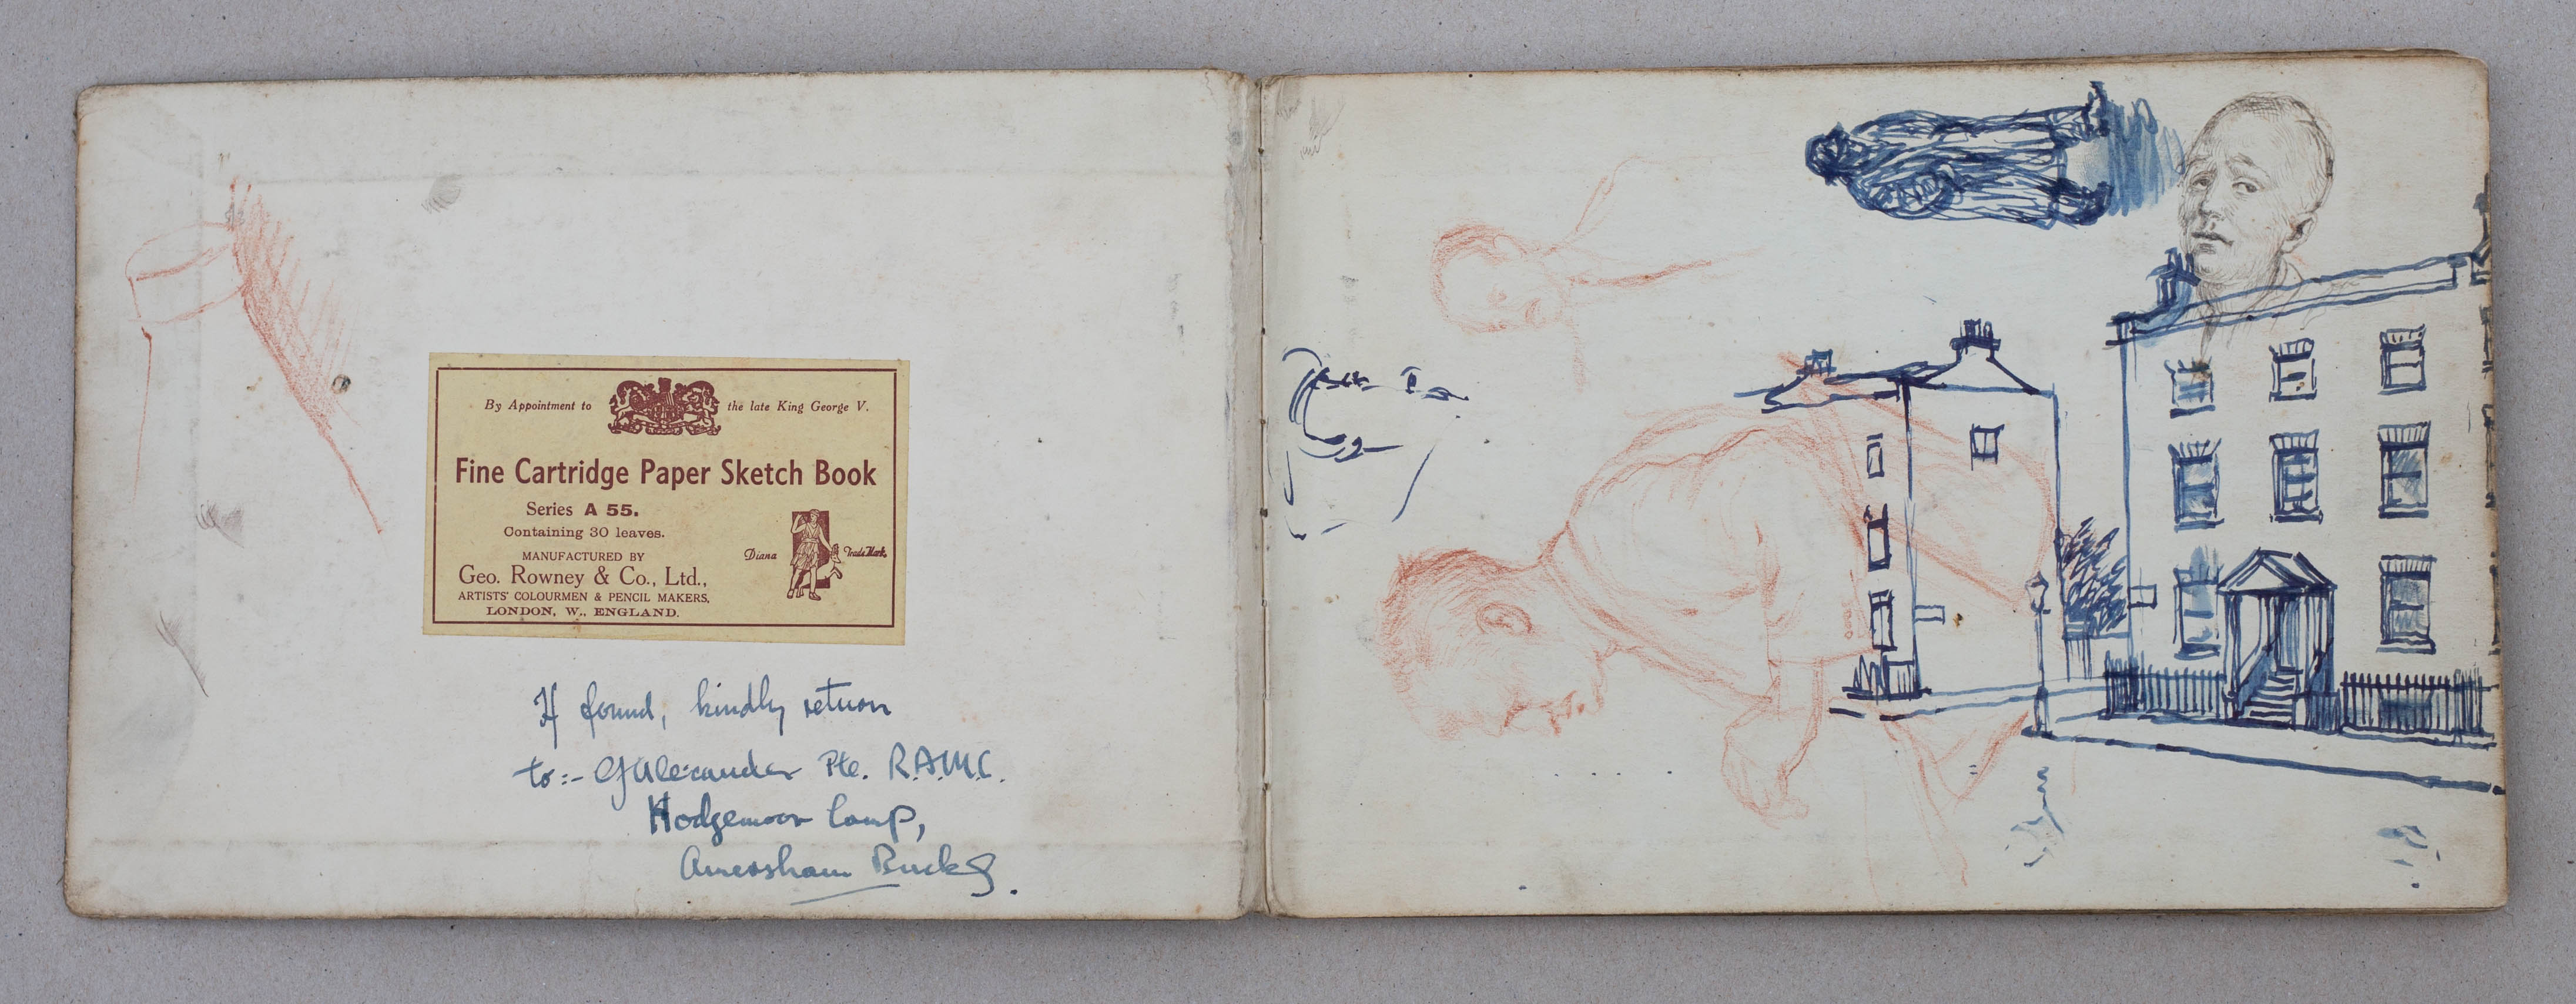 By Appointment to the late King George V.
Fine Cartridge Paper Sketch Book
Series A 55.
Containing 30 leaves.
MANUFACTURED BY
Geo. Rowney & Co., Ltd.,
ARTISTS' COLOURMEN & PENCIL MAKERS,
LONDON, W., ENGLAND.
Diana Trade Mark
If found, kindly return
to:- GAlexander Pte. R.A.M.C.
Hodgemoor Camp,
Amersham Bucks.